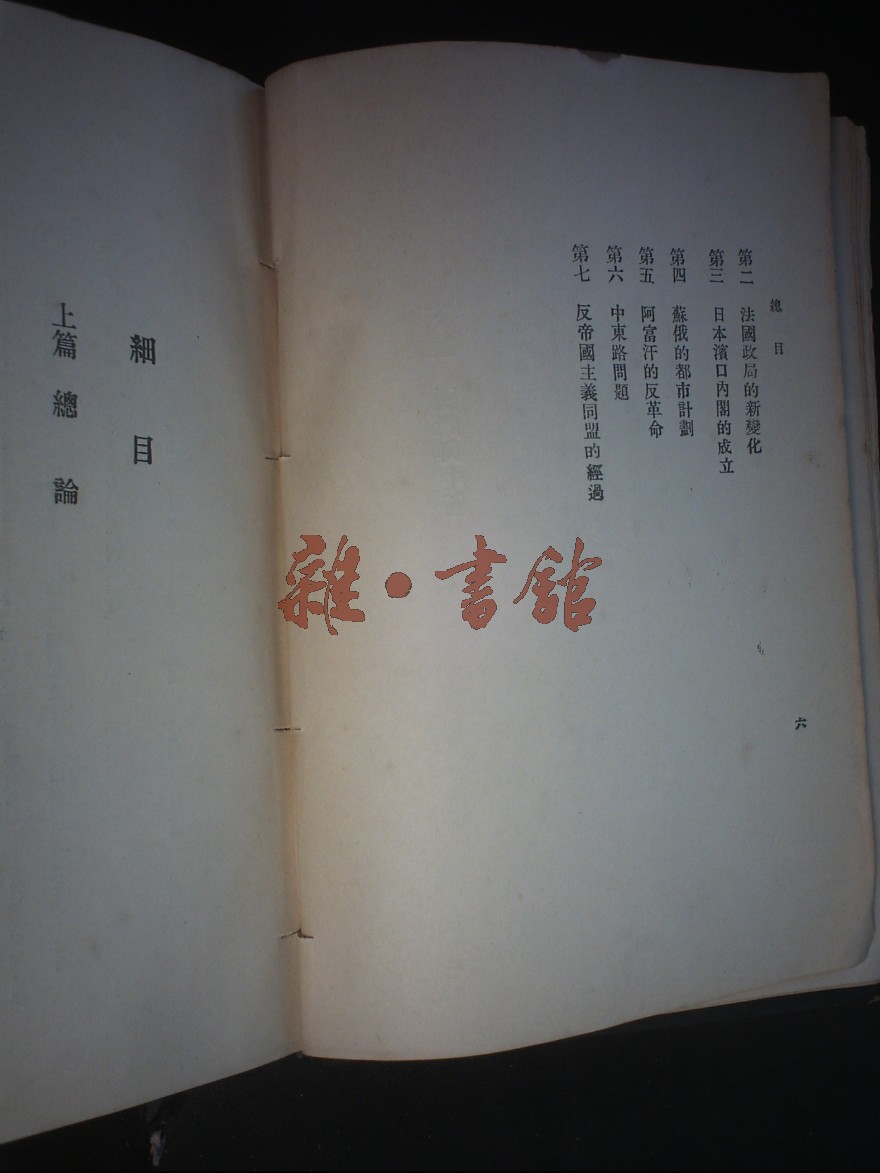 總目
第二 法國政局的新變化
第三 日本濱口內閣的成立
第四 蘇俄的都市計劃
第五 阿富汗的反革命
第六 中東路問題
第七 反帝國主義同盟的經過
六
細目
上篇 總論
雜·書館